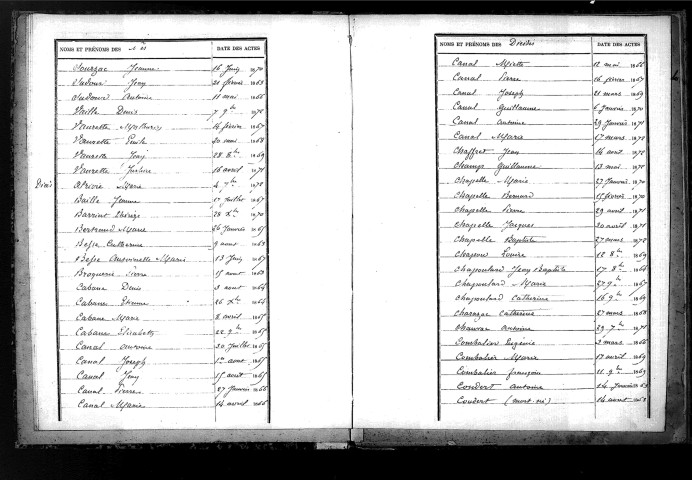 NOMS ET PRÉNOMS DES Nés DATE DES ACTES
Jeanne 16 Juin 1870
Judoux Jean 21 février 1868
Antoine 11 mai 1866
Vaille Denis 7 9bre 1872
Vaurette 16 février 1867
Vaurette Emile 20 mai 1868
Vaurette Jean 28 8bre 1869
Vaurette Justine 16 avril 1871
Décès Marie 4 7bre 1872
Baille Jeanne 17 Juillet 1867
Barriat Thérèse 28 Xbre 1870
Bertrand Marie 26 Janvier 1865
Besse Catherine 9 aout
Besse Antoinette Marie 13 Juin 1867
Broquerie Pierre 15 aout 1868
Cabane Denis 3 aout 1864
Cabane Etienne 26 Xbre 1864
Cabane Marie 8 avril 1865
Cabane Elisabeth 22 9bre 1865
Canal Antoine 30 Juillet 1865
Canal Joseph 1er aout 1865
Canal Jean 15 aout 1865
Canal Pierre 27 Janvier 1866
Canal Marie 14 avril 1866
NOMS ET PRÉNOMS DES Décédés DATE DES ACTES
Canal Miette 12 mai 1866
Canal Pierre 16 février 1867
Canal Joseph 21 mars 1869
Canal Guillaume 6 Janvier 1870
Canal Antoine 29 Janvier 1871
Canal Marie 17 mars 1872
Chaffret Jean 14 aout 1872
Champs Guillaume 13 mai 1871
Chapelle Marie 27 Janvier 1870
Chapelle Bernard 15 février 1870
Chapelle Pierre 29 avril 1871
Chapelle Jacques 30 avril 1871
Chapelle Baptiste 27 mars 1872
Chapoux Louise 12 8bre 1869
Chapoulard Jean Baptiste 17 8bre 1866
Chapoulard Marie 27 9bre 1867
Chapoulard Catherine 16 9bre 1869
Catherine 27 mars 1868
Antoine 29 7bre 1871
Combalier Eugénie 3 mars 1866
Combalier Marie 17 avril 1869
Combalier françois 11 9bre 1869
Condert Antoine 24 Janvier
Condert (mort-né) 14 aout